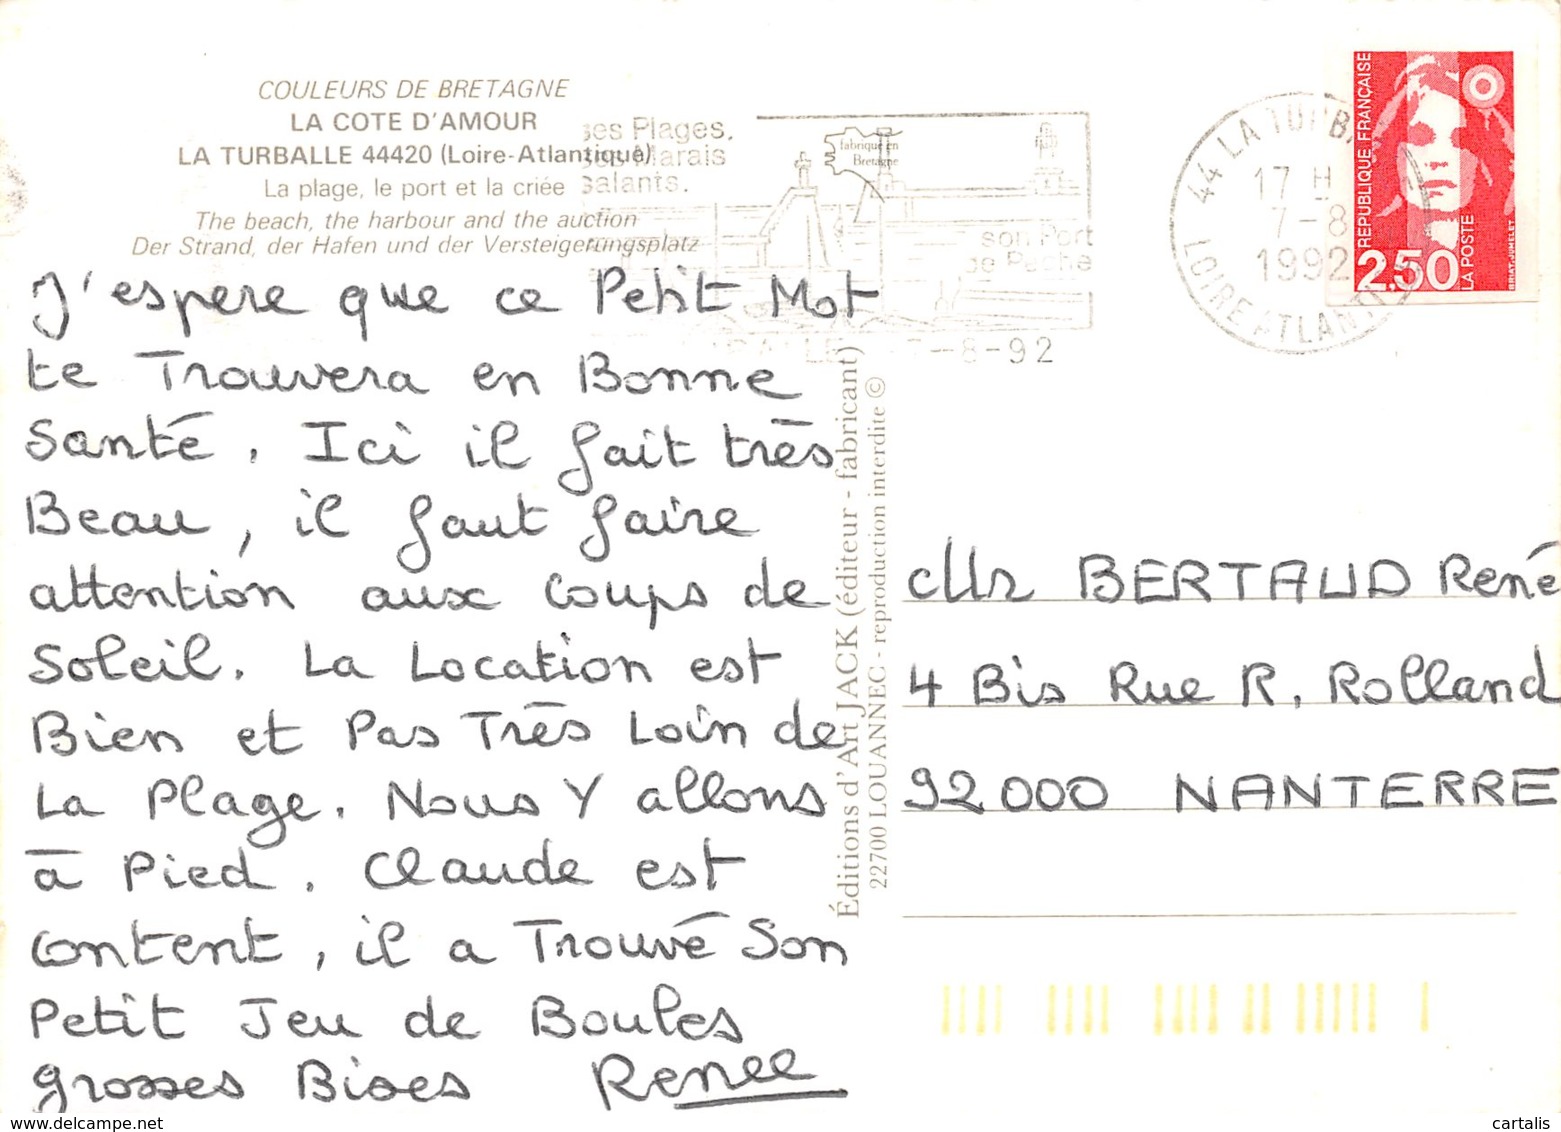 COULEURS DE BRETAGNE
LA COTE D'AMOUR
LA TURBALLE 44420 (Loire-Atlantique)
La plage, le port et la criée
The beach, the harbour and the auction
Der Strand, der Hafen und der Versteigerungsplatz
ses Plages,
ses Marais
salants.
fabriqué en
Bretagne
son Port
de Pêche
7-8-92
44 LA TURBA
17 H
7-8
1992
LOIRE ATLANTI
REPUBLIQUE FRANÇAISE
2,50
LA POSTE
BRIAT-JUMELET
J'espere que ce Petit Mot
te Trouvera en Bonne
Santé. Ici il fait très
Beau, il faut faire
attention aux coups de
Soleil. La Location est
Bien et Pas Très Loin de
La Plage. Nous Y allons
à Pied. Claude est
content, il a Trouvé Son
Petit Jeu de Boules
grosses Bises Renee
Éditions d'Art JACK (éditeur - fabricant)
22700 LOUANNEC - reproduction interdite ©
Mr BERTAUD René
4 Bis Rue R. Rolland
92000 NANTERRE
cartalis